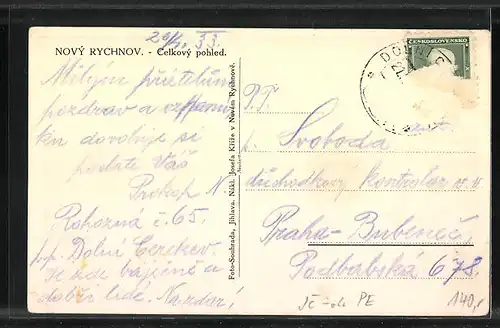 20/7. 33.
NOVÝ RYCHNOV. - Celkový pohled.
Milým přátelům
pozdrav a vzpomín
kou dovoluje si
poslati Váš
Prokop N.
Rohozná č. 65.
p.p. Dolní Cerekev.
Je zde báječně a
dobří lidé. Nazdar!
Foto-Soubrada, Jihlava. Nákl. Josefa Kříže v Novém Rychnově.
ČESKOSLOVENSKO
DOLNÍ
P.T.
p. Svoboda
důchodkový kontrolor v. v.
Praha-Bubeneč
Podbabská 678.
PE
140,-